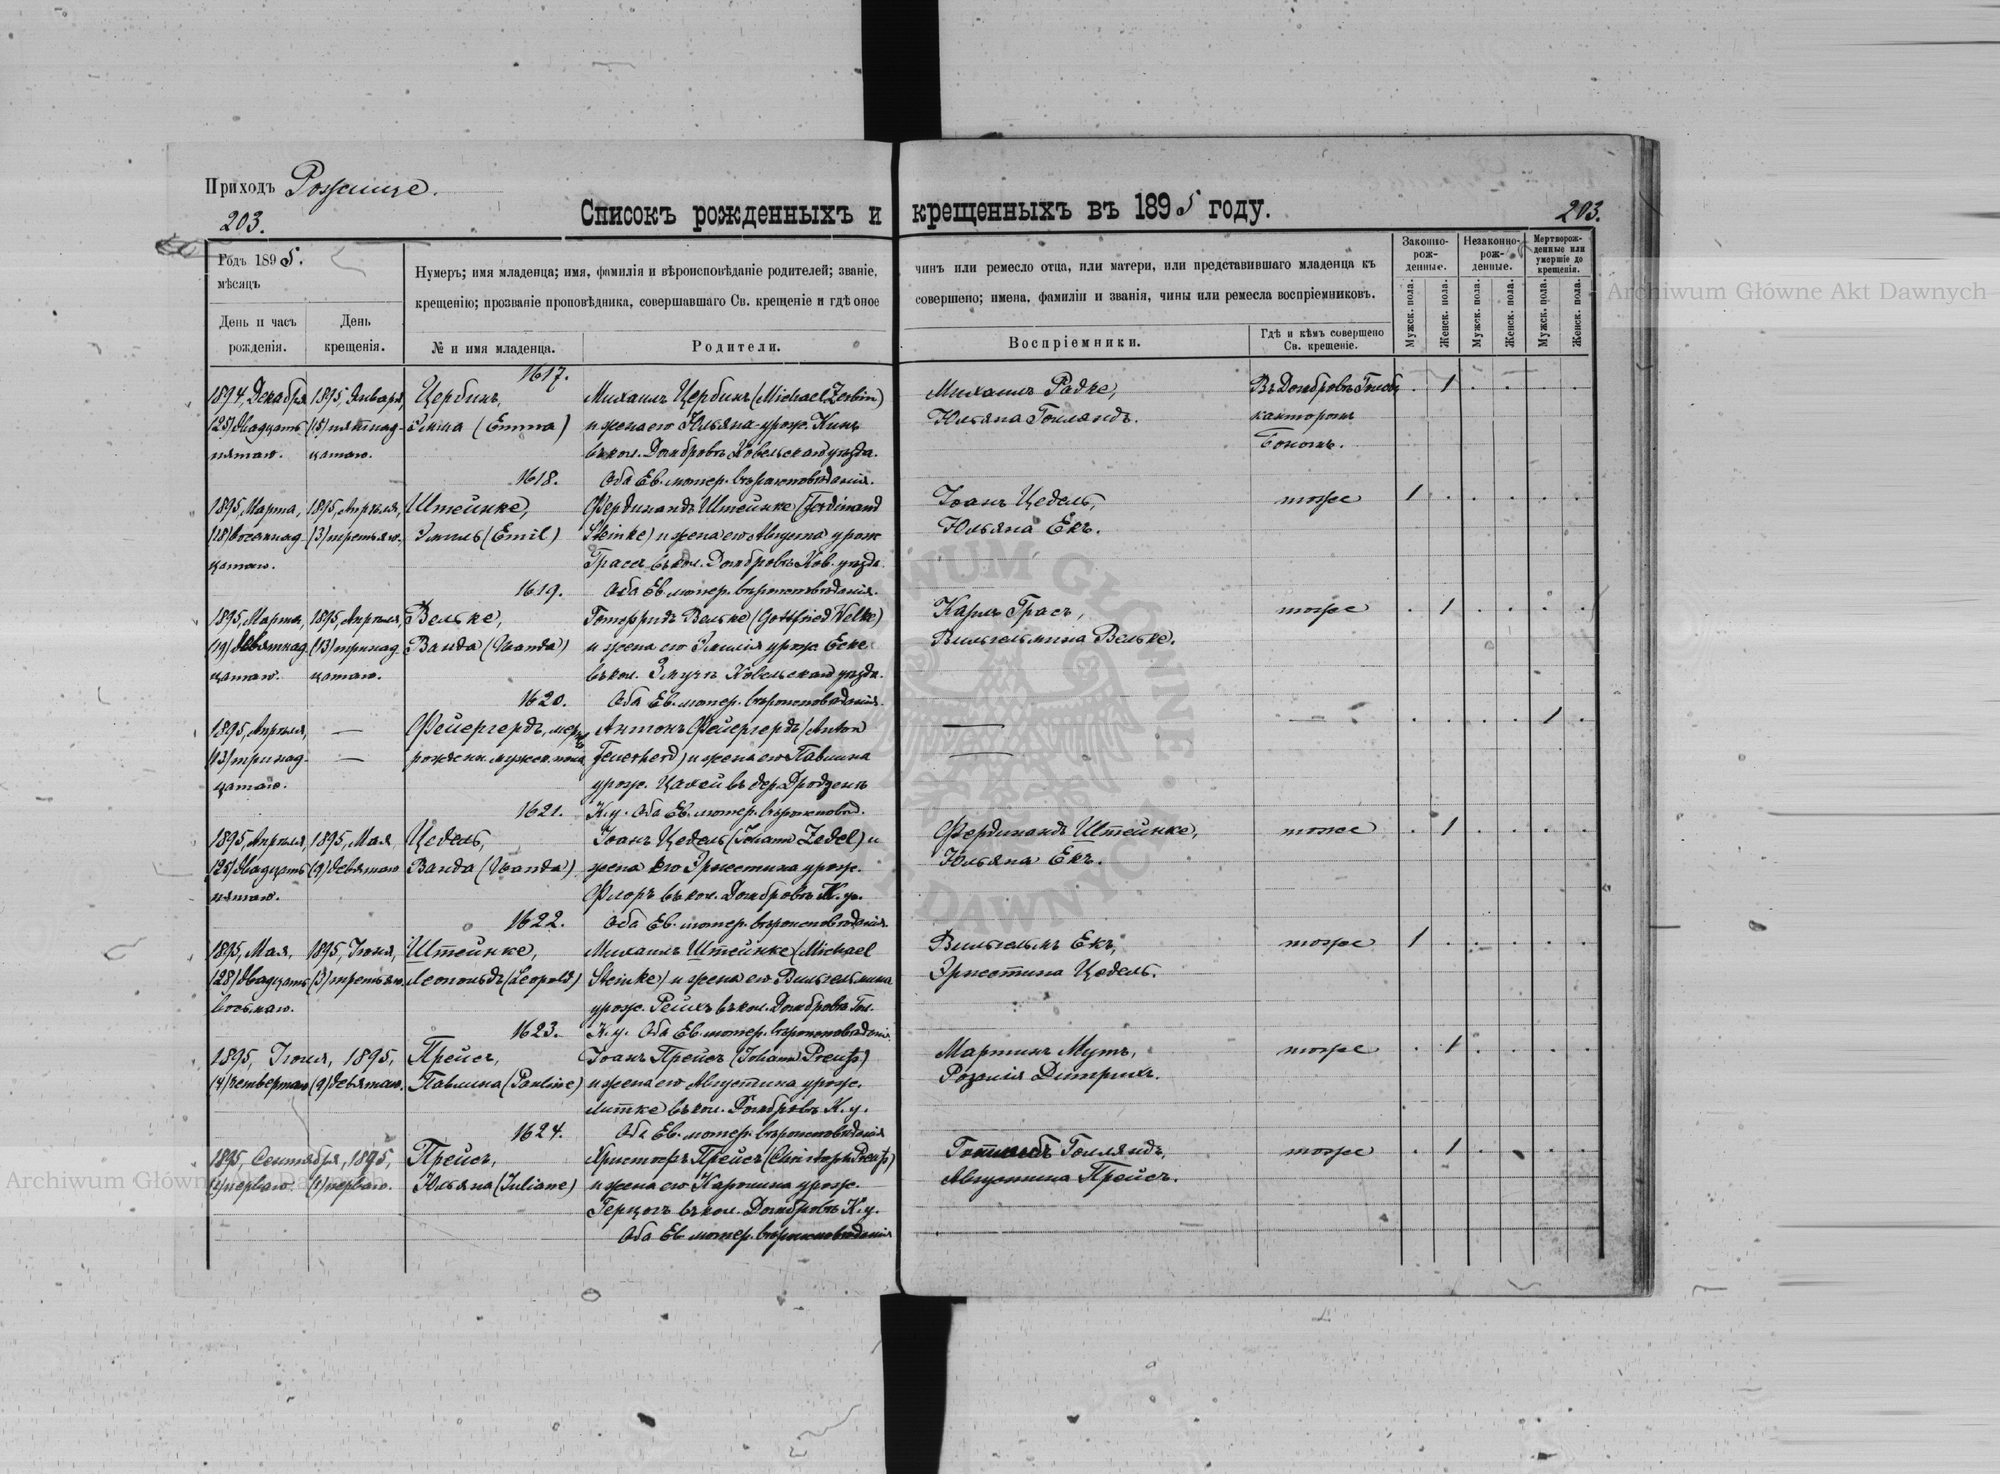 Приходъ Рожище.
203.
Списокъ рожденныхъ и крещенныхъ въ 1895 году.
203.
Годъ 1895.
мѣсяцъ
День и часъ рожденія.
День крещенія.
Нумеръ; имя младенца; имя, фамилія и вѣроисповѣданіе родителей; званіе,
крещенію; прозваніе проповѣдника, совершавшаго Св. крещеніе и гдѣ оное
№ и имя младенца.
Родители.
чинъ или ремесло отца, или матери, или представившаго младенца къ
совершено; имена, фамиліи и званія, чины или ремесла воспріемниковъ.
Воспріемники.
Гдѣ и кѣмъ совершено
Св. крещеніе.
Законно-
рож-
денные.
Незаконно-
рож-
денные.
Мертворож-
денные или
умершіе до
крещенія.
Мужск. пола.
Женск. пола.
Мужск. пола.
Женск. пола.
Мужск. пола.
Женск. пола.
1617.
1894, Декабря 1895, Января, Цербинъ, Михаилъ Цербинъ (Michael Zerbin) Михаилъ Радке, 1
(25) двадцать (15) пятнад- Эмма (Emma) и жена его Юльяна урож. Кинъ Юльяна Голландъ. канторомъ
пятаго. цатаго. въ кол. Домбровъ Ковельскаго уѣзда.
1618. Оба Ев. лютер. вѣроисповѣданія.
1895, Марта, 1895, Апрѣля, Штейнке, Фердинандъ Штейнке (Ferdinand Іоанъ Цедель, тоже 1
(18) восемнад- (3) третьяго. Эмиль (Emil) Steinke) и жена его Августа урож. Юльяна Екъ.
цатаго. въ кол. Домбровъ Ков. уѣзда.
1619. Оба Ев. лютер. вѣроисповѣданія.
1895, Марта, 1895, Апрѣля, Вельке, Готфридъ Вельке (Gottfried Welke) Карлъ Грасъ, тоже 1
(19) девятнад- (13) тринад- Ванда (Wanda) и жена его Эмилія урож. Вильгельмина Вельке.
цатаго. цатаго. въ кол. Ковельскаго уѣзда.
1620. Оба Ев. лютер. вѣроисповѣданія.
1895, Апрѣля, — Фейергердъ, Антонъ Фейергердъ (Anton — — 1
(13) тринад- — мужск. пола Feuerherd) и жена его Павлина —
цатаго. урож. въ дер.
1621. К. у. Оба Ев. лютер. вѣроисповѣд.
1895, Апрѣля, 1895, Мая Цедель, Іоанъ Цедель (Johann Zedel) и Фердинандъ Штейнке, тоже 1
(25) двадцать (9) девятаго Ванда (Wanda) жена его Эрнестина урож. Юльяна Екъ.
пятаго. Флоръ въ кол. Домбровъ К. у.
1622. Оба Ев. лютер. вѣроисповѣданія.
1895, Мая, 1895, Іюня, Штейнке, Михаилъ Штейнке (Michael Вильгельмъ Екъ, тоже 1
(28) двадцать (3) третьяго. Леопольдъ (Leopold) Steinke) и жена его Вильгельмина Эрнестина Цедель.
восьмаго. урож. въ кол. Домбровъ
1623. К. у. Оба Ев. лютер. вѣроисповѣданія.
1895, Іюня, 1895, Прейсъ, Іоанъ Прейсъ (Johann Preuß) Мартинъ Мутъ, тоже 1
(4) четвертаго (9) девятаго. Павлина (Pauline) и жена его Августина урож. Розалія Дитрихъ.
Литке въ кол. Домбровъ К. у.
1624. Оба Ев. лютер. вѣроисповѣданія
1895, Сентября, 1895, Прейсъ, Христофъ Прейсъ (Christoph Preuß) Готлибъ Голляндъ, тоже 1
(1) перваго. (1) перваго. Юльяна (Juliane) и жена его Каролина урож. Августина Прейсъ.
Герцогъ въ кол. Домбровъ К. у.
Оба Ев. лютер. вѣроисповѣданія
Archiwum Główne Akt Dawnych
Archiwum Główne Akt Dawnych